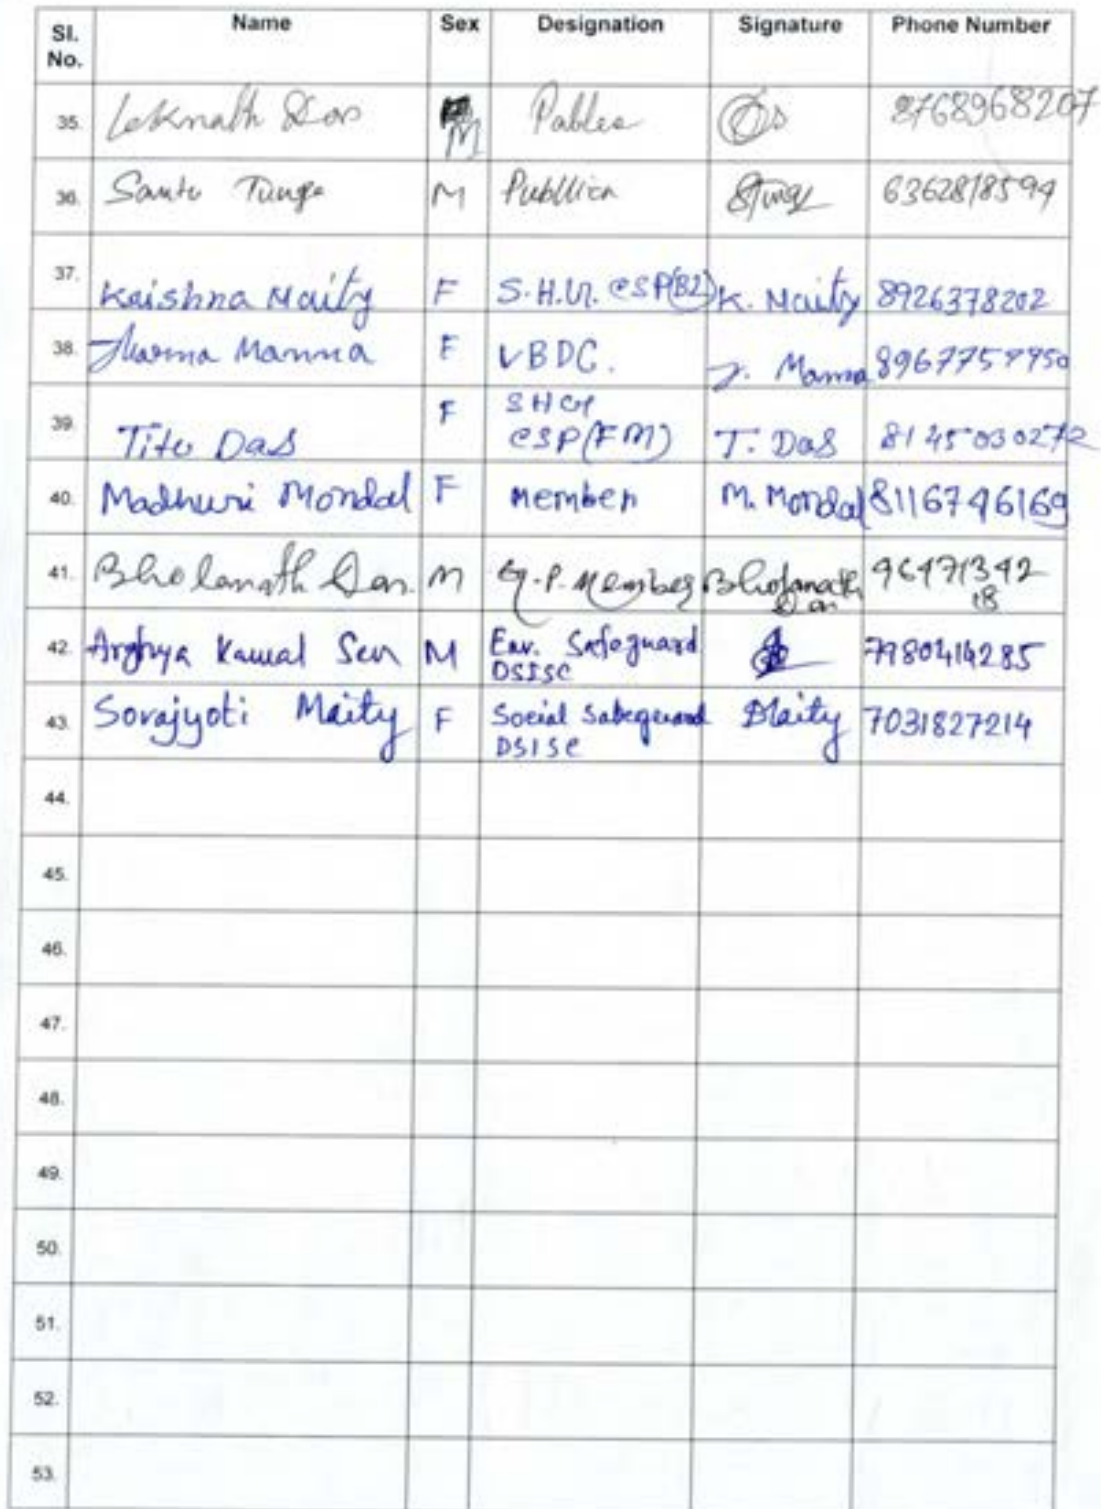 Sl. No. Name Sex Designation Signature Phone Number
35. Loknath Das M Pablea 8768968207
36. Santu Tunga M Publlica STunga 6362818594
37. Kaishna Maity F S.H.G. CSP(B2) K. Maity 8926378202
38. Jharna Manna F VBDC. J. Manna
39. Titu Das F SHG CSP(FM) T. Das 8145030272
40. Madhuri Mondal F Member M. Mondal 8116746169
41. Bholanath Das. M G.P. Member Bholanath Das 9647134218
42. Arghya Kamal Sen M Env. Safeguard DSISC 7980414285
43. Sorajyoti Maity F Social Sabeguard DSISC SMaity 7031827214
44.
45.
46.
47.
48.
49.
50.
51.
52.
53.